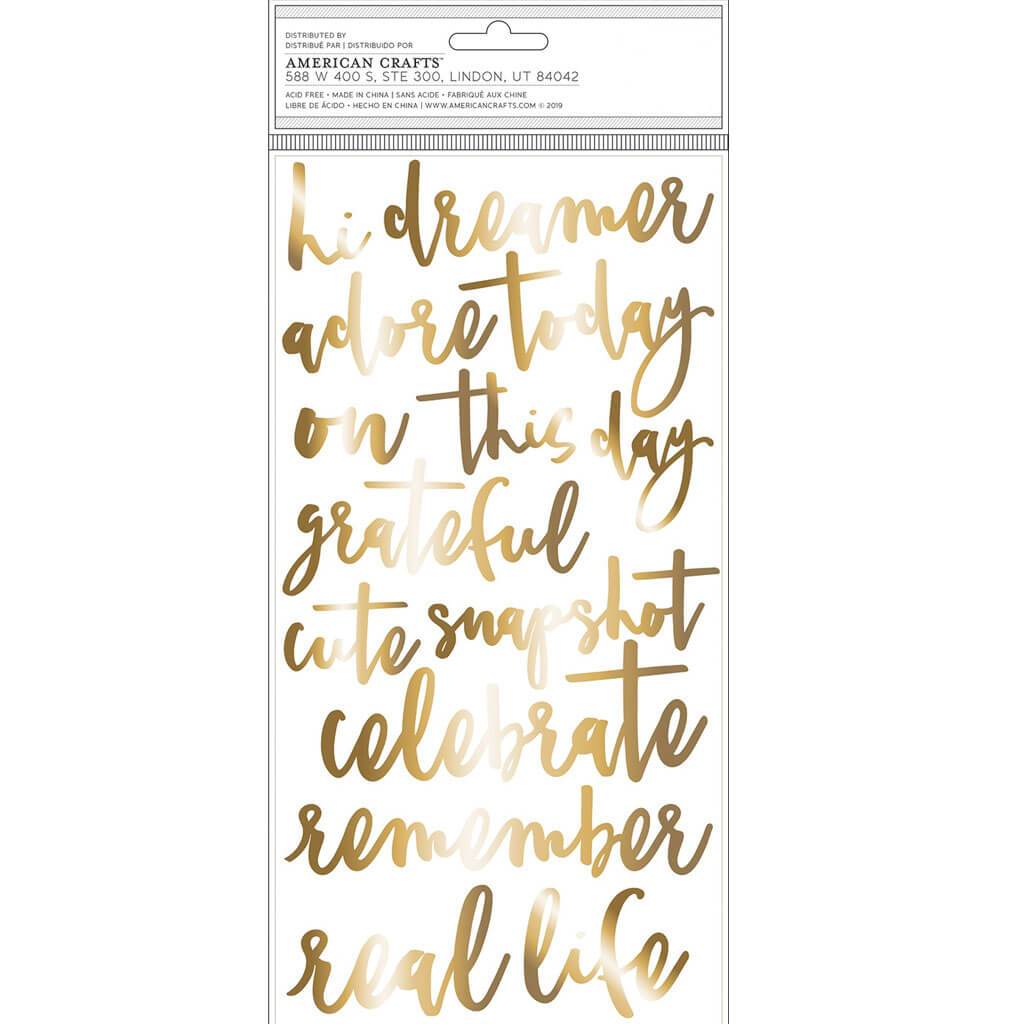 DISTRIBUTED BY
DISTRIBUÉ PAR | DISTRIBUIDO POR
AMERICAN CRAFTS™
588 W 400 S, STE 300, LINDON, UT 84042
ACID FREE • MADE IN CHINA | SANS ACIDE • FABRIQUÉ AUX CHINE
LIBRE DE ÁCIDO • HECHO EN CHINA | WWW.AMERICANCRAFTS.COM © 2019
hi dreamer
adore today
on this day
grateful
cute snapshot
celebrate
remember
real life